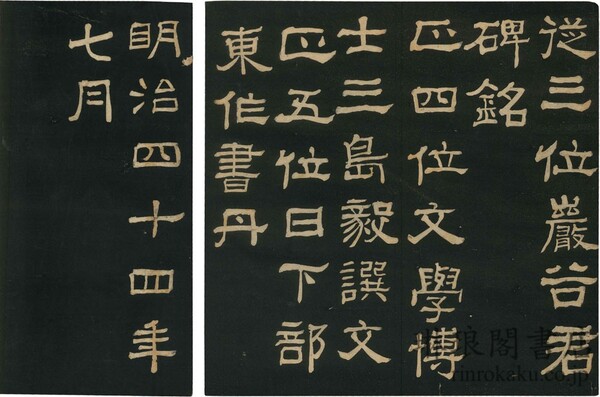 從三位巖谷君
碑銘
正四位文學博
士三島毅譔文
正五位日下部
東作書丹
明治四十四年
七月
琳琅閣書店
rinrokaku.co.jp